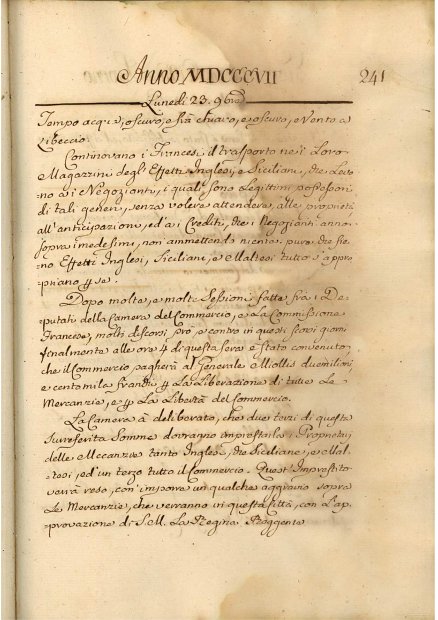 Anno MDCCCVII 241
Lunedì 23. 9bre
Tempo acqua, oscuro, e frà chiaro, e oscuro, e Vento a
Libeccio.
Continovano i Francesi il trasporto nei Loro
Magazzini degl' Effetti Inglesi, e Siciliani, che Levo
no a i Negozianti, i quali sono Legittimi possessori
di tali generi, senza volere attendere, alle proprietà
all' anticipazioni, ed a i Crediti, che i Negozianti anno
sopra i medesimi, non ammettendo niente, pure che sie-
no Effetti Inglesi, Siciliani, e Maltesi tutto s' appro
priano p se.
Dopo molte, e molte Sessioni fatte frà i De-
putati della Camera del Commercio, e La Commissione
Francese, molti discorsi prò, e contro in questi scorsi giorni
finalmente alle ore 4 di questa sera è stato convenuto,
che il Commercio pagherà al Generale Miollis due milioni,
e centomila franchi p La Liberazione di tutte Le
Mercanzie, e p La Libertà del Commercio.
La Camera à deliberato, che due terzi di questa
Surreferita Somma dovranno imprestarla i Proprietarj
delle Mecanzie tanto Inglesi, che Siciliane, e Mal-
tesi, ed' un terzo tutto il Commercio. Quest' Imprestito
verrà reso, con' imporre un qualche aggravio sopra
Le Mercanzie, che verranno in questa Città, con L' ap-
provazione di S. M. La Regina Reggente